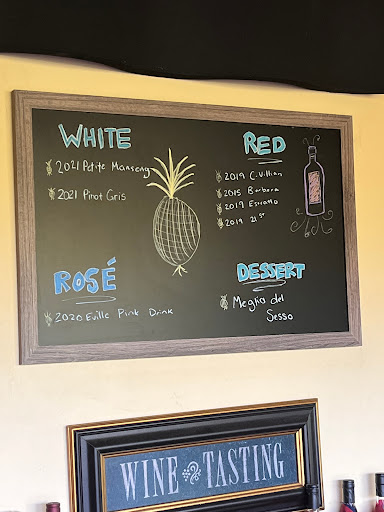 WHITE
2021 Petite Manseng
2021 Pinot Gris
RED
2019 C-Villian
2015 Barbera
2019 Estratto
2019 21st
ROSÉ
2020 Eville Pink Drink
DESSERT
Meglio del
Sesso
WINE TASTING